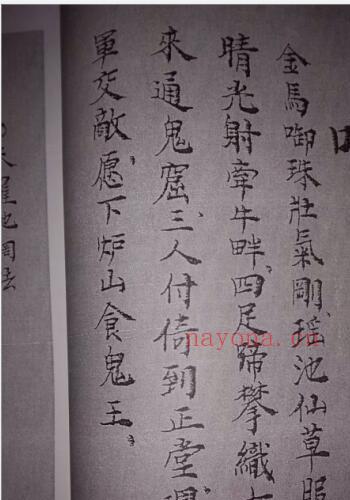 金馬啣珠壯氣剛瑶池仙草
晴光射牽牛畔四足蹄攀織
來通鬼窟三人付倚到正堂
軍交敵愿下炉山食鬼王
nayona.cn